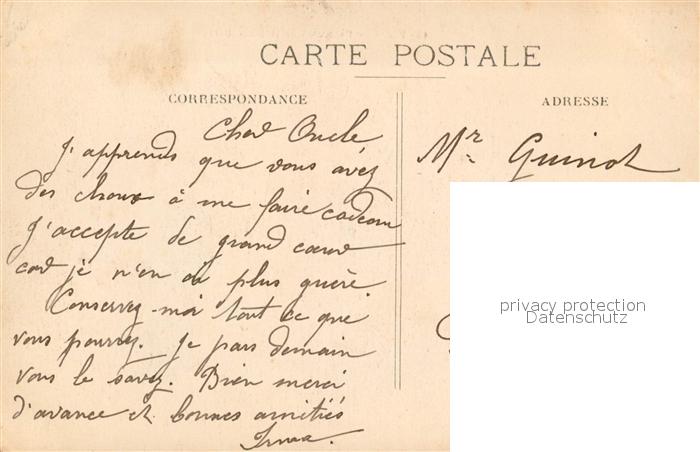 CARTE POSTALE
CORRESPONDANCE
ADRESSE
Cher Oncle
J'apprends que vous avez
des choux à me faire cadeau
J'accepte de grand cœur
car je n'en ai plus guère.
Conservez-moi tout ce que
vous pourrez. Je pars demain
vous le savez. Bien merci
d'avance et bonnes amitiés
Irma.
Mr Guinot
privacy protection
Datenschutz